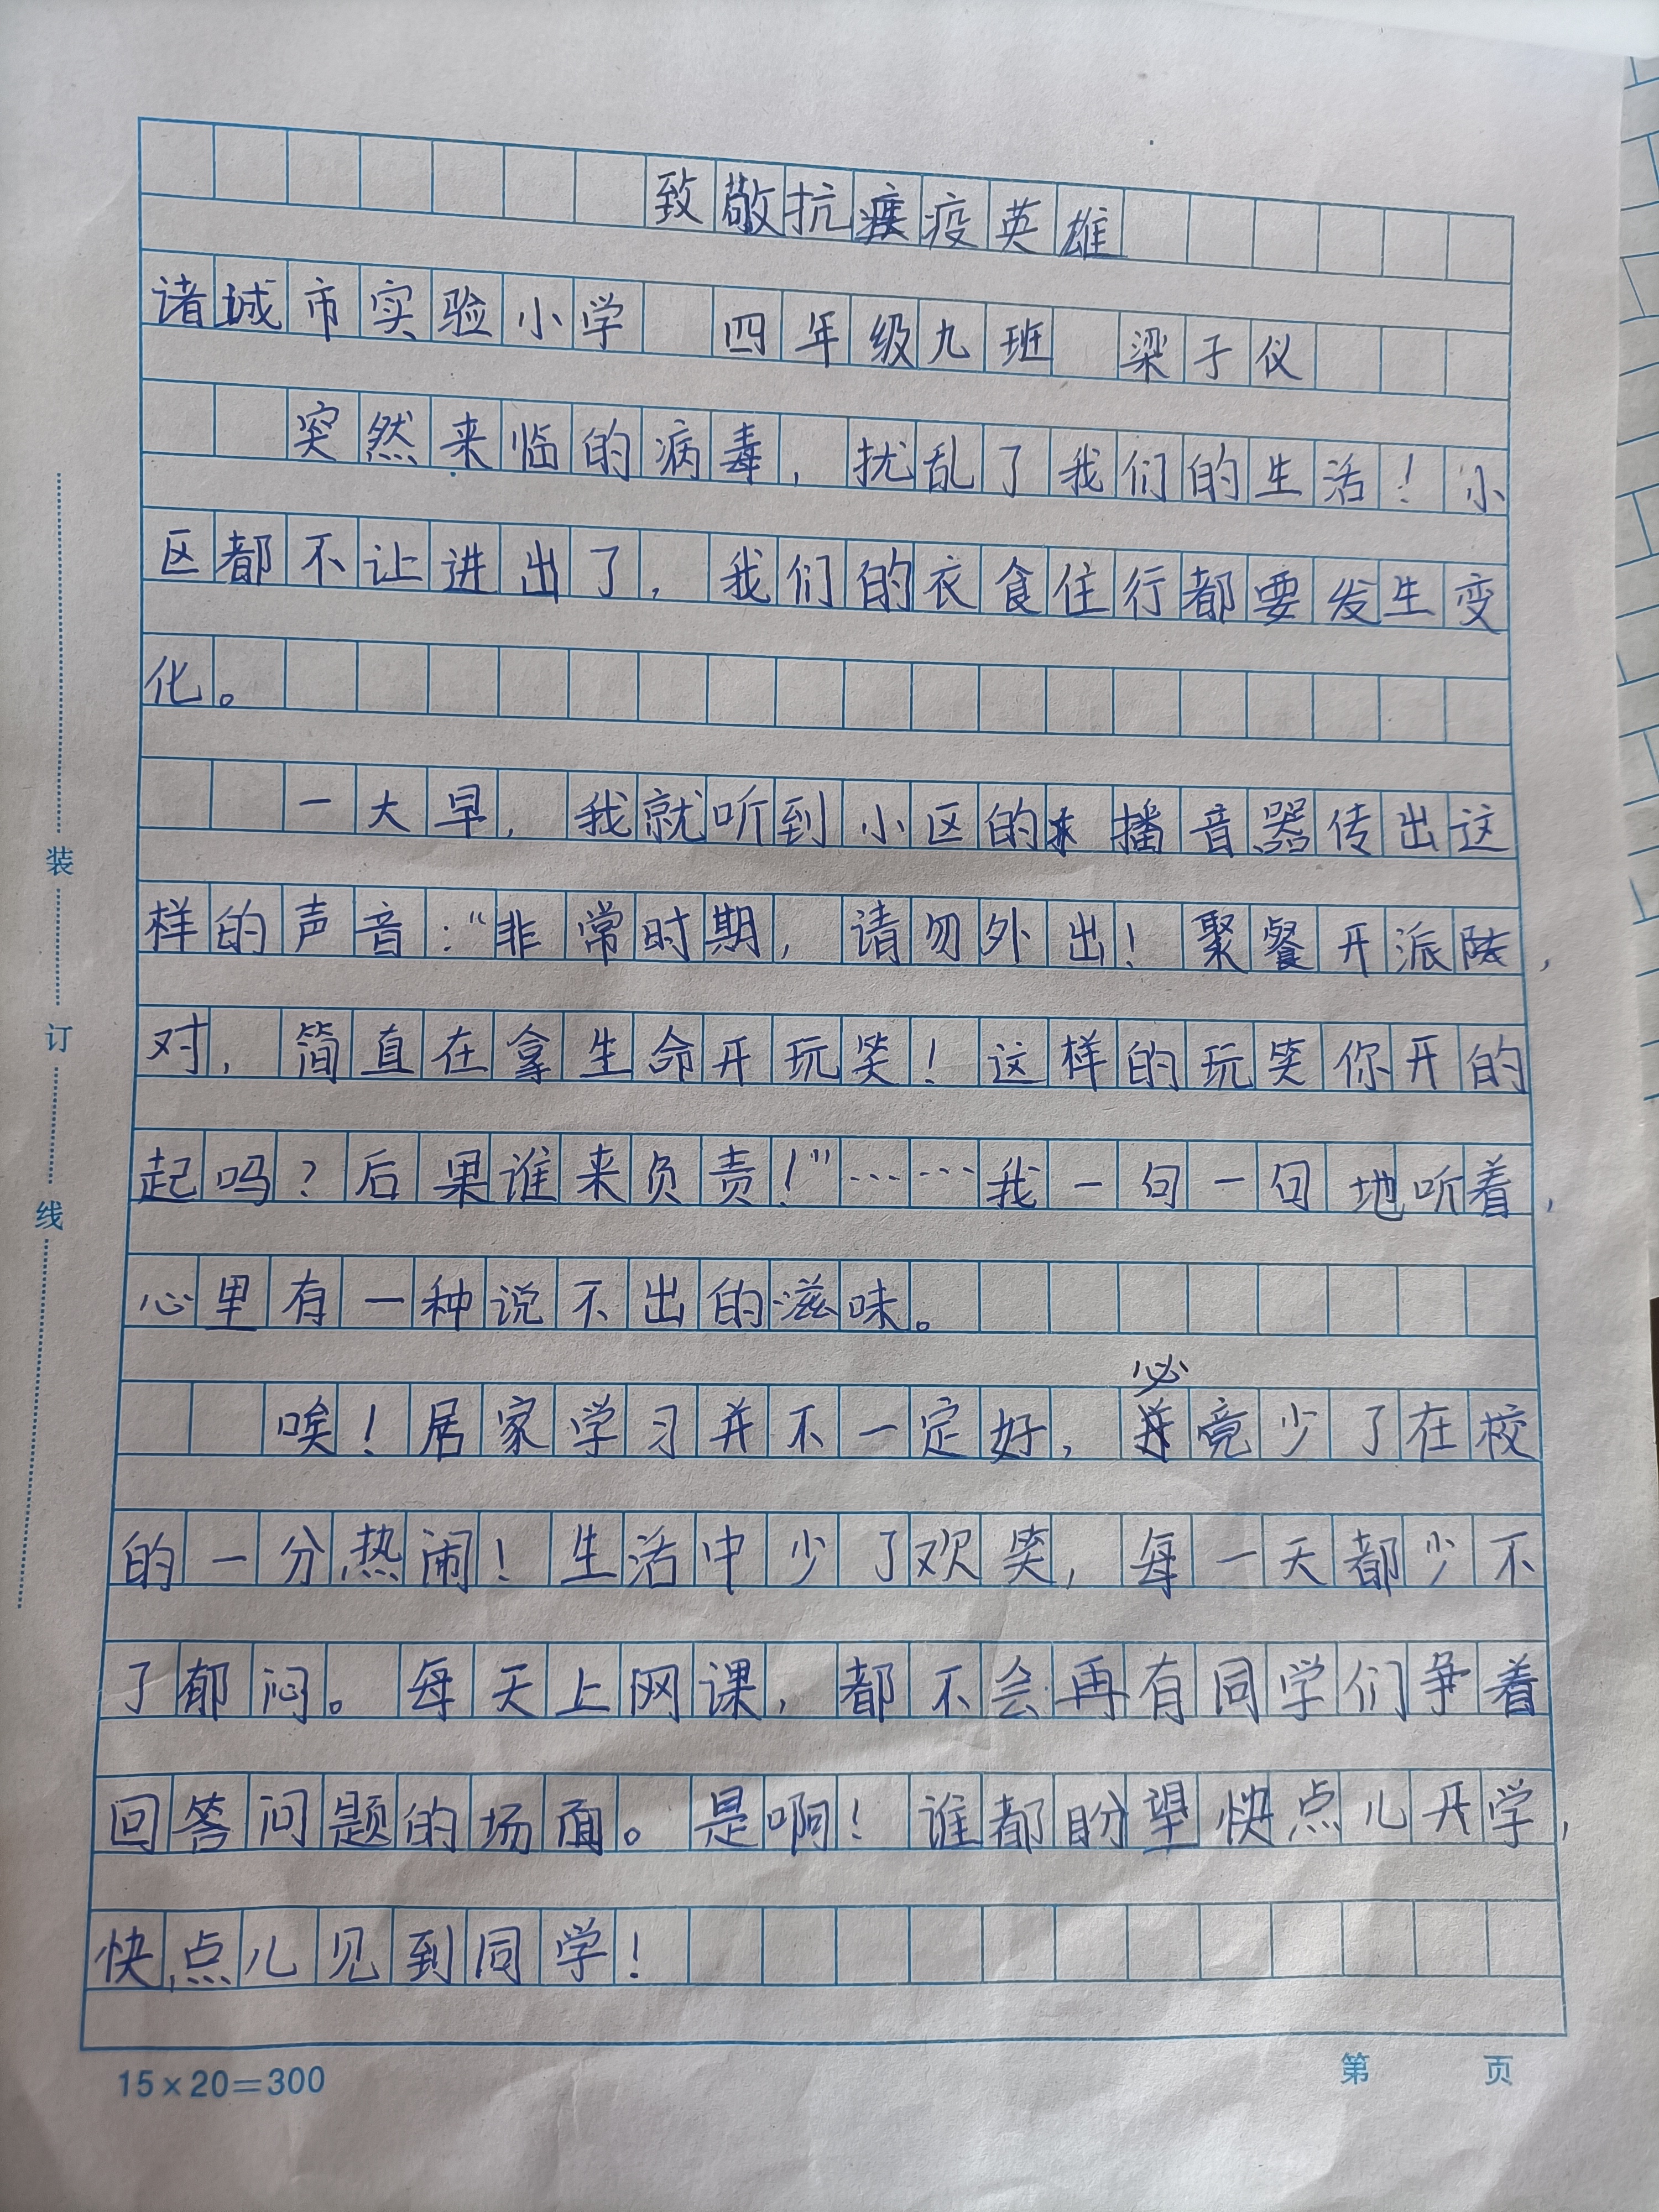 致敬抗疫英雄
诸城市实验小学 四年级九班 梁子仪
突然来临的病毒，扰乱了我们的生活！小
区都不让进出了，我们的衣食住行都要发生变
化。
一大早，我就听到小区的播音器传出这
样的声音：“非常时期，请勿外出！聚餐开派，
对，简直在拿生命开玩笑！这样的玩笑你开的
起吗？后果谁来负责！”……我一句一句地听着，
心里有一种说不出的滋味。
唉！居家学习并不一定好，必竟少了在校
的一分热闹！生活中少了欢笑，每一天都少不
了郁闷。每天上网课，都不会再有同学们争着
回答问题的场面。是啊！谁都盼望快点儿开学，
快点儿见到同学！
装
订
线
15×20=300
第 页